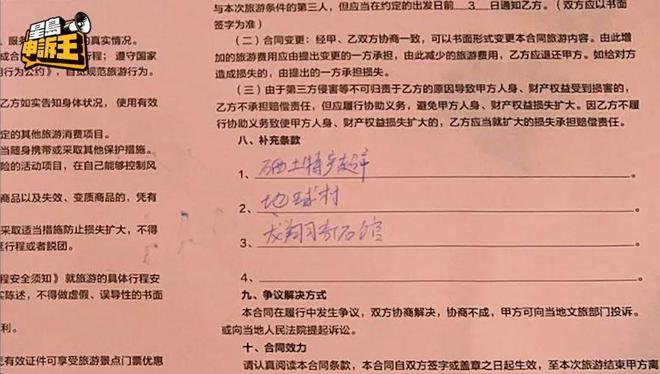 星島
申訴王
的真实情况。
遵守国家
用行为公约》，自觉规范旅游行为。
乙方如实告知身体状况，使用有效
定的其他旅游消费项目。
当随身携带或采取其他保护措施。
险的活动项目，在自己能够控制风
商品以及失效、变质商品的，凭有
采取适当措施防止损失扩大，不得
行程或者脱团。
程安全须知》就旅游的具体行程安
实陈述，不得做虚假、误导性的书面
利。
有效证件可享受旅游景点门票优惠
与本次旅游条件的第三人，但应当在约定的出发日前 3 日通知乙方。（双方应以书面
签字为准）
（二）合同变更：经甲、乙双方协商一致，可以书面形式变更本合同旅游内容。由此增
加的旅游费用应由提出变更的一方承担，由此减少的旅游费用，乙方应退还甲方。如给对方
造成损失的，由提出的一方承担损失。
（三）由于第三方侵害等不可归责于乙方的原因导致甲方人身、财产权益受到损害的，
乙方不承担赔偿责任，但应履行协助义务，避免甲方人身、财产权益损失扩大。因乙方不履
行协助义务致使甲方人身、财产权益损失扩大的，乙方应当就扩大的损失承担赔偿责任。
八、补充条款
1、硒土特产超市
2、地球村
3、龙翔羽彩石馆
4、
九、争议解决方式
本合同在履行中发生争议，双方协商解决，协商不成，甲方可向当地文旅部门投诉。
或向当地人民法院提起诉讼。
十、合同效力
请认真阅读本合同条款，本合同自双方签字或盖章之日起生效，至本次旅游结束甲方离